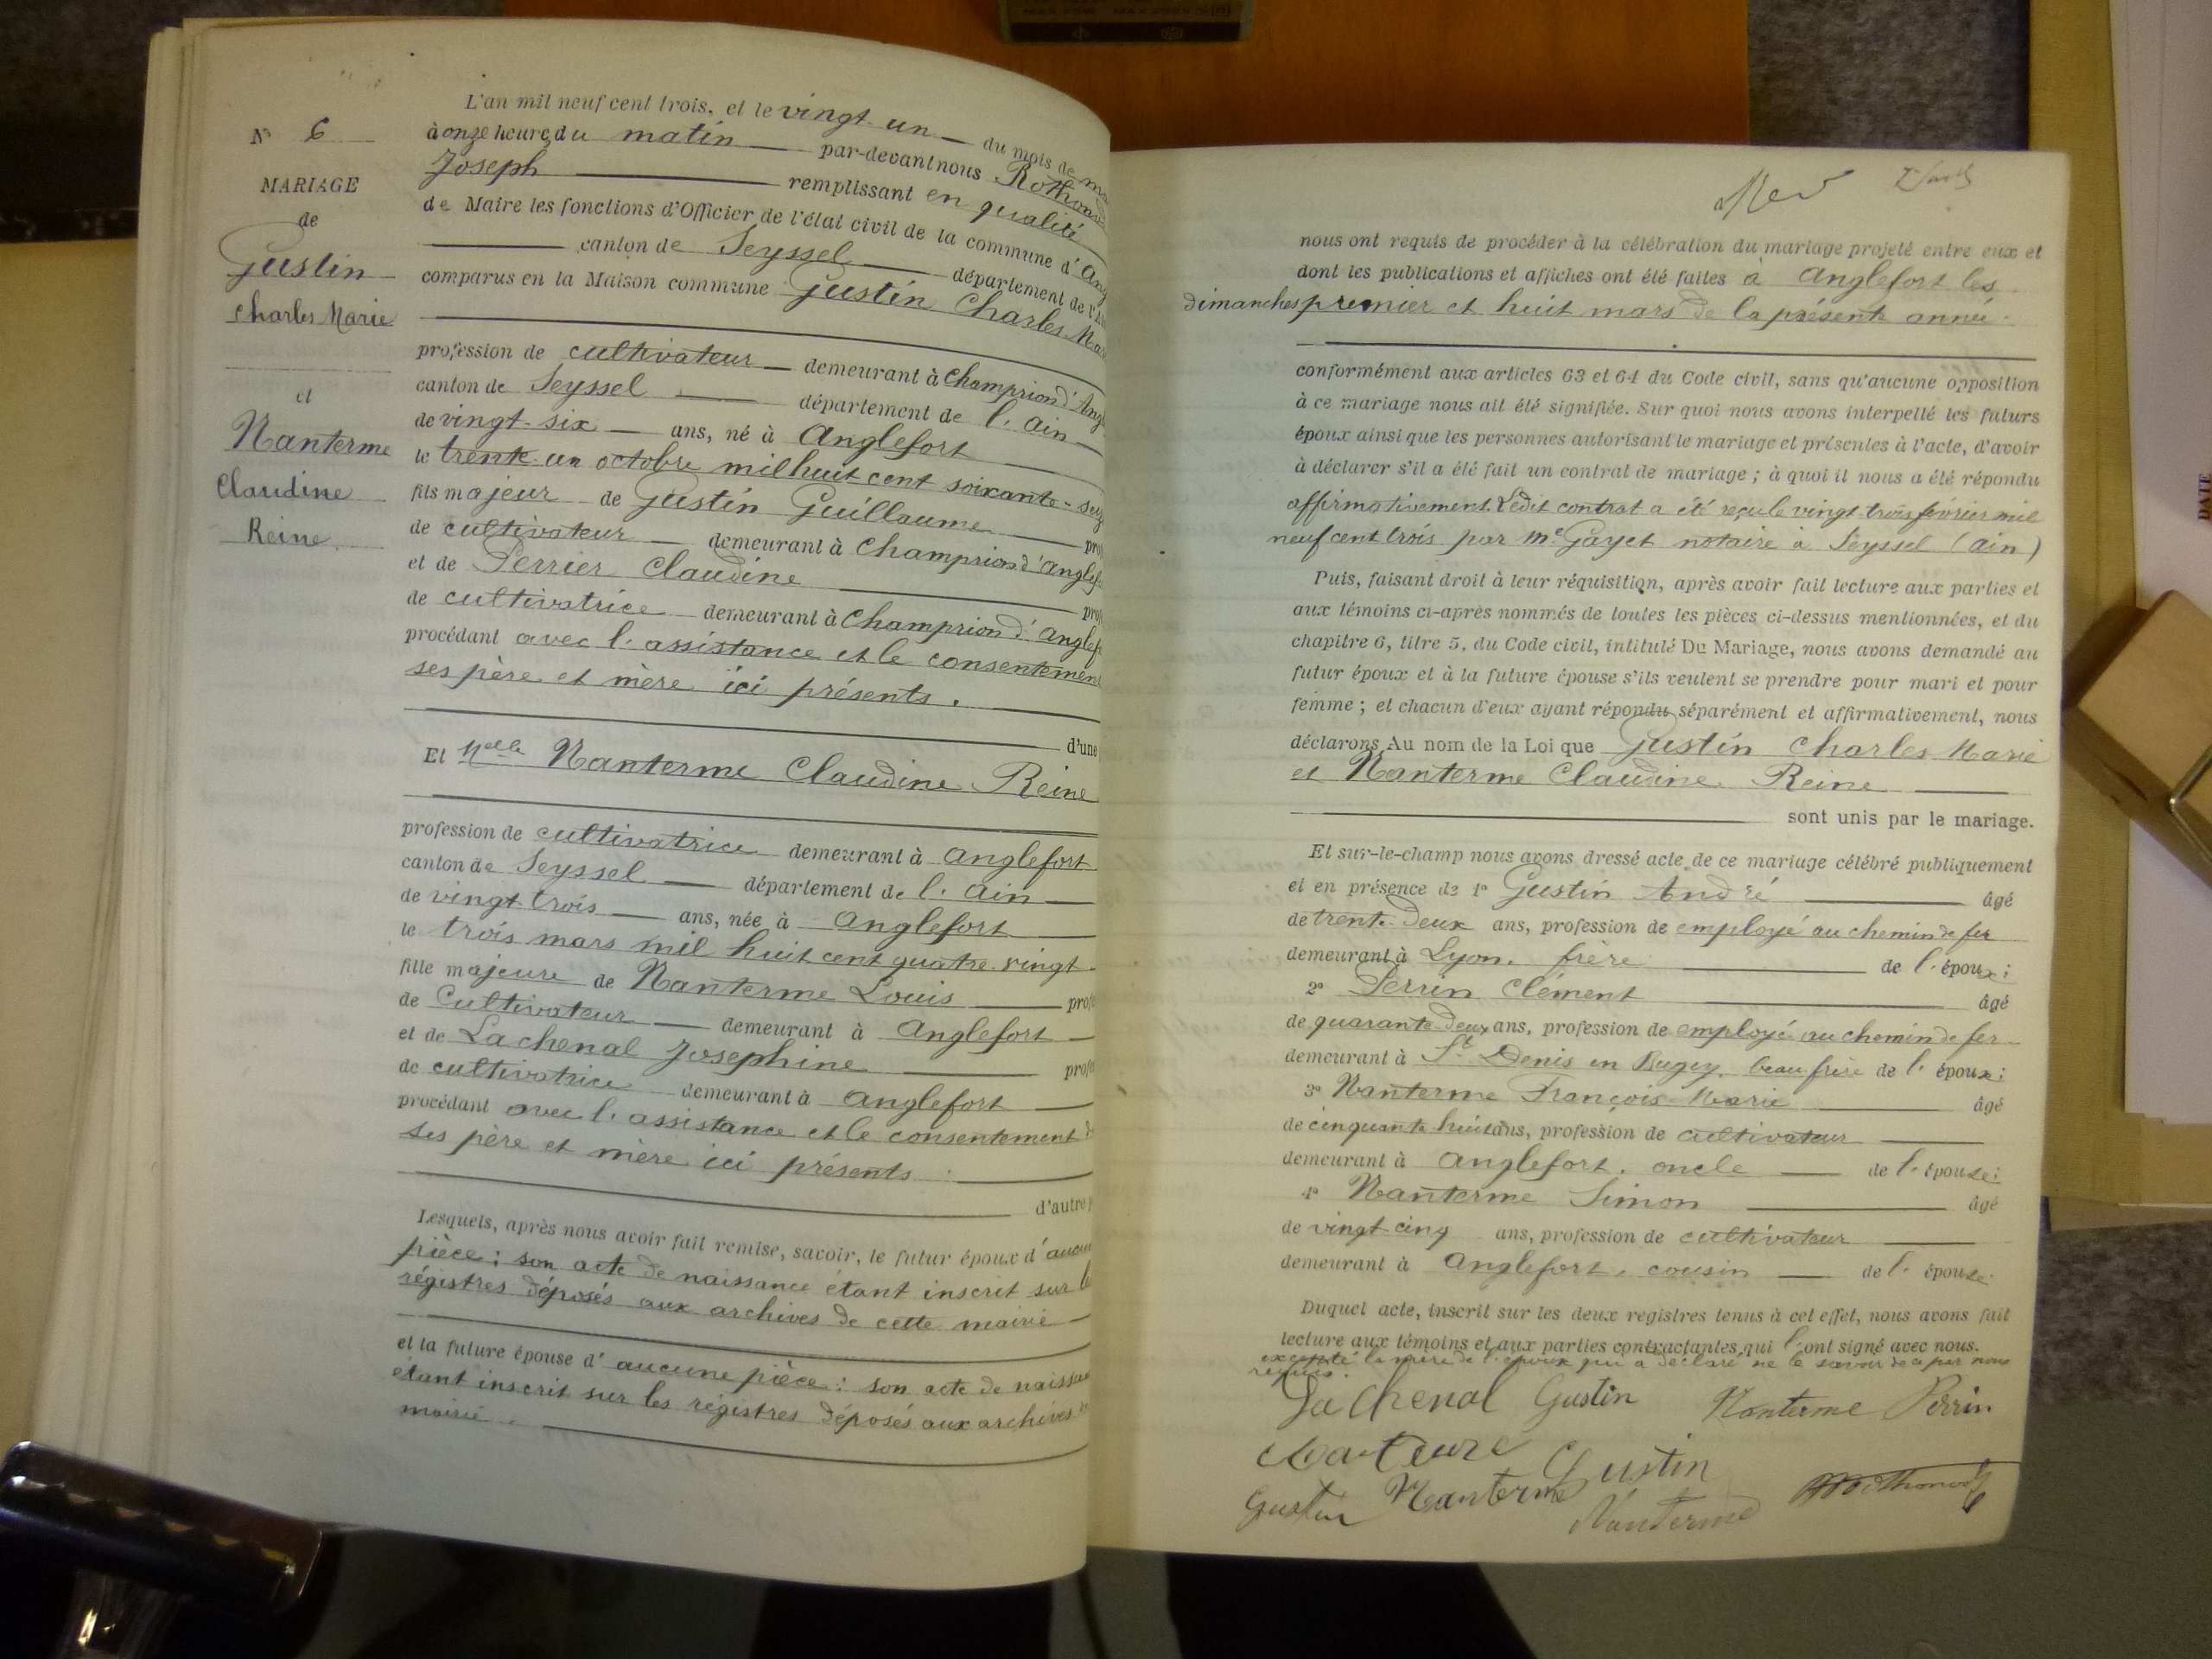 N° 6
MARIAGE
de
Gustin
Charles Marie
et
Nanterme
Claudine
Reine
L'an mil neuf cent trois, et le vingt un du mois de
à onze heures du matin par-devant nous
Joseph remplissant en qualité
de Maire les fonctions d'Officier de l'état civil de la commune d'
canton de Seyssel département de
comparus en la Maison commune Gustin Charles
profession de cultivateur demeurant à Champriond d'
canton de Seyssel département de l'Ain
de vingt-six ans, né à Anglefort
le trente un octobre mil huit cent soixante-
fils majeur de Gustin Guillaume
de cultivateur demeurant à Champriond d'
et de Perrier Claudine
de cultivatrice demeurant à Champriond d'
procédant avec l'assistance et le
ses père et mère ici présents.
d'une
Et Melle Nanterme Claudine Reine
profession de cultivatrice demeurant à Anglefort
canton de Seyssel département de l'Ain
de vingt trois ans, née à Anglefort
le trois mars mil huit cent quatre vingt
fille majeure de Nanterme Louis
de Cultivateur demeurant à Anglefort
et de Lachenal Josephine
de cultivatrice demeurant à Anglefort
procédant avec l'assistance et le consentement
ses père et mère ici présents
d'autre
Lesquels, après nous avoir fait remise, savoir, le futur époux d'
pièce; son acte de naissance étant inscrit sur
régistres déposés aux archives de cette mairie
et la future épouse d'aucune pièce; son acte de
étant inscrit sur les régistres déposés aux archives
mairie.
nous ont requis de procéder à la célébration du mariage projeté entre eux et
dont les publications et affiches ont été faites à Anglefort les
dimanches premier et huit mars de la présente année
conformément aux articles 63 et 64 du Code civil, sans qu'aucune opposition
à ce mariage nous ait été signifiée. Sur quoi nous avons interpellé les futurs
époux ainsi que les personnes autorisant le mariage et présentes à l'acte, d'avoir
à déclarer s'il a été fait un contrat de mariage; à quoi il nous a été répondu
affirmativement. Ledit contrat a été reçu le vingt trois février mil
neuf cent trois par Me Gayet notaire à Seyssel (Ain)
Puis, faisant droit à leur réquisition, après avoir fait lecture aux parties et
aux témoins ci-après nommés de toutes les pièces ci-dessus mentionnées, et du
chapitre 6, titre 5, du Code civil, intitulé Du Mariage, nous avons demandé au
futur époux et à la future épouse s'ils veulent se prendre pour mari et pour
femme; et chacun d'eux ayant répondu séparément et affirmativement, nous
déclarons Au nom de la Loi que Gustin Charles Marie
et Nanterme Claudine Reine
sont unis par le mariage.
Et sur-le-champ nous avons dressé acte de ce mariage célébré publiquement
et en présence de 1° Gustin André âgé
de trente deux ans, profession de employé au chemin de fer
demeurant à Lyon. frère de l'époux;
2° Perrin Clément âgé
de quarante deux ans, profession de employé au chemin de fer
demeurant à St Denis en Bugey. beau frère de l'époux;
3° Nanterme François Marie âgé
de cinquante huit ans, profession de cultivateur
demeurant à Anglefort. oncle de l'épouse;
4° Nanterme Simon âgé
de vingt cinq ans, profession de cultivateur
demeurant à Anglefort, cousin de l'épouse.
Duquel acte, inscrit sur les deux registres tenus à cet effet, nous avons fait
lecture aux témoins et aux parties contractantes, qui l'ont signé avec nous.
excepté la mère de l'époux qui a déclaré ne le savoir de ce par nous
requis.
La chenal Gustin Nanterme Perrin
Gustin
Gustin Nanterme
Nanterme
DATE